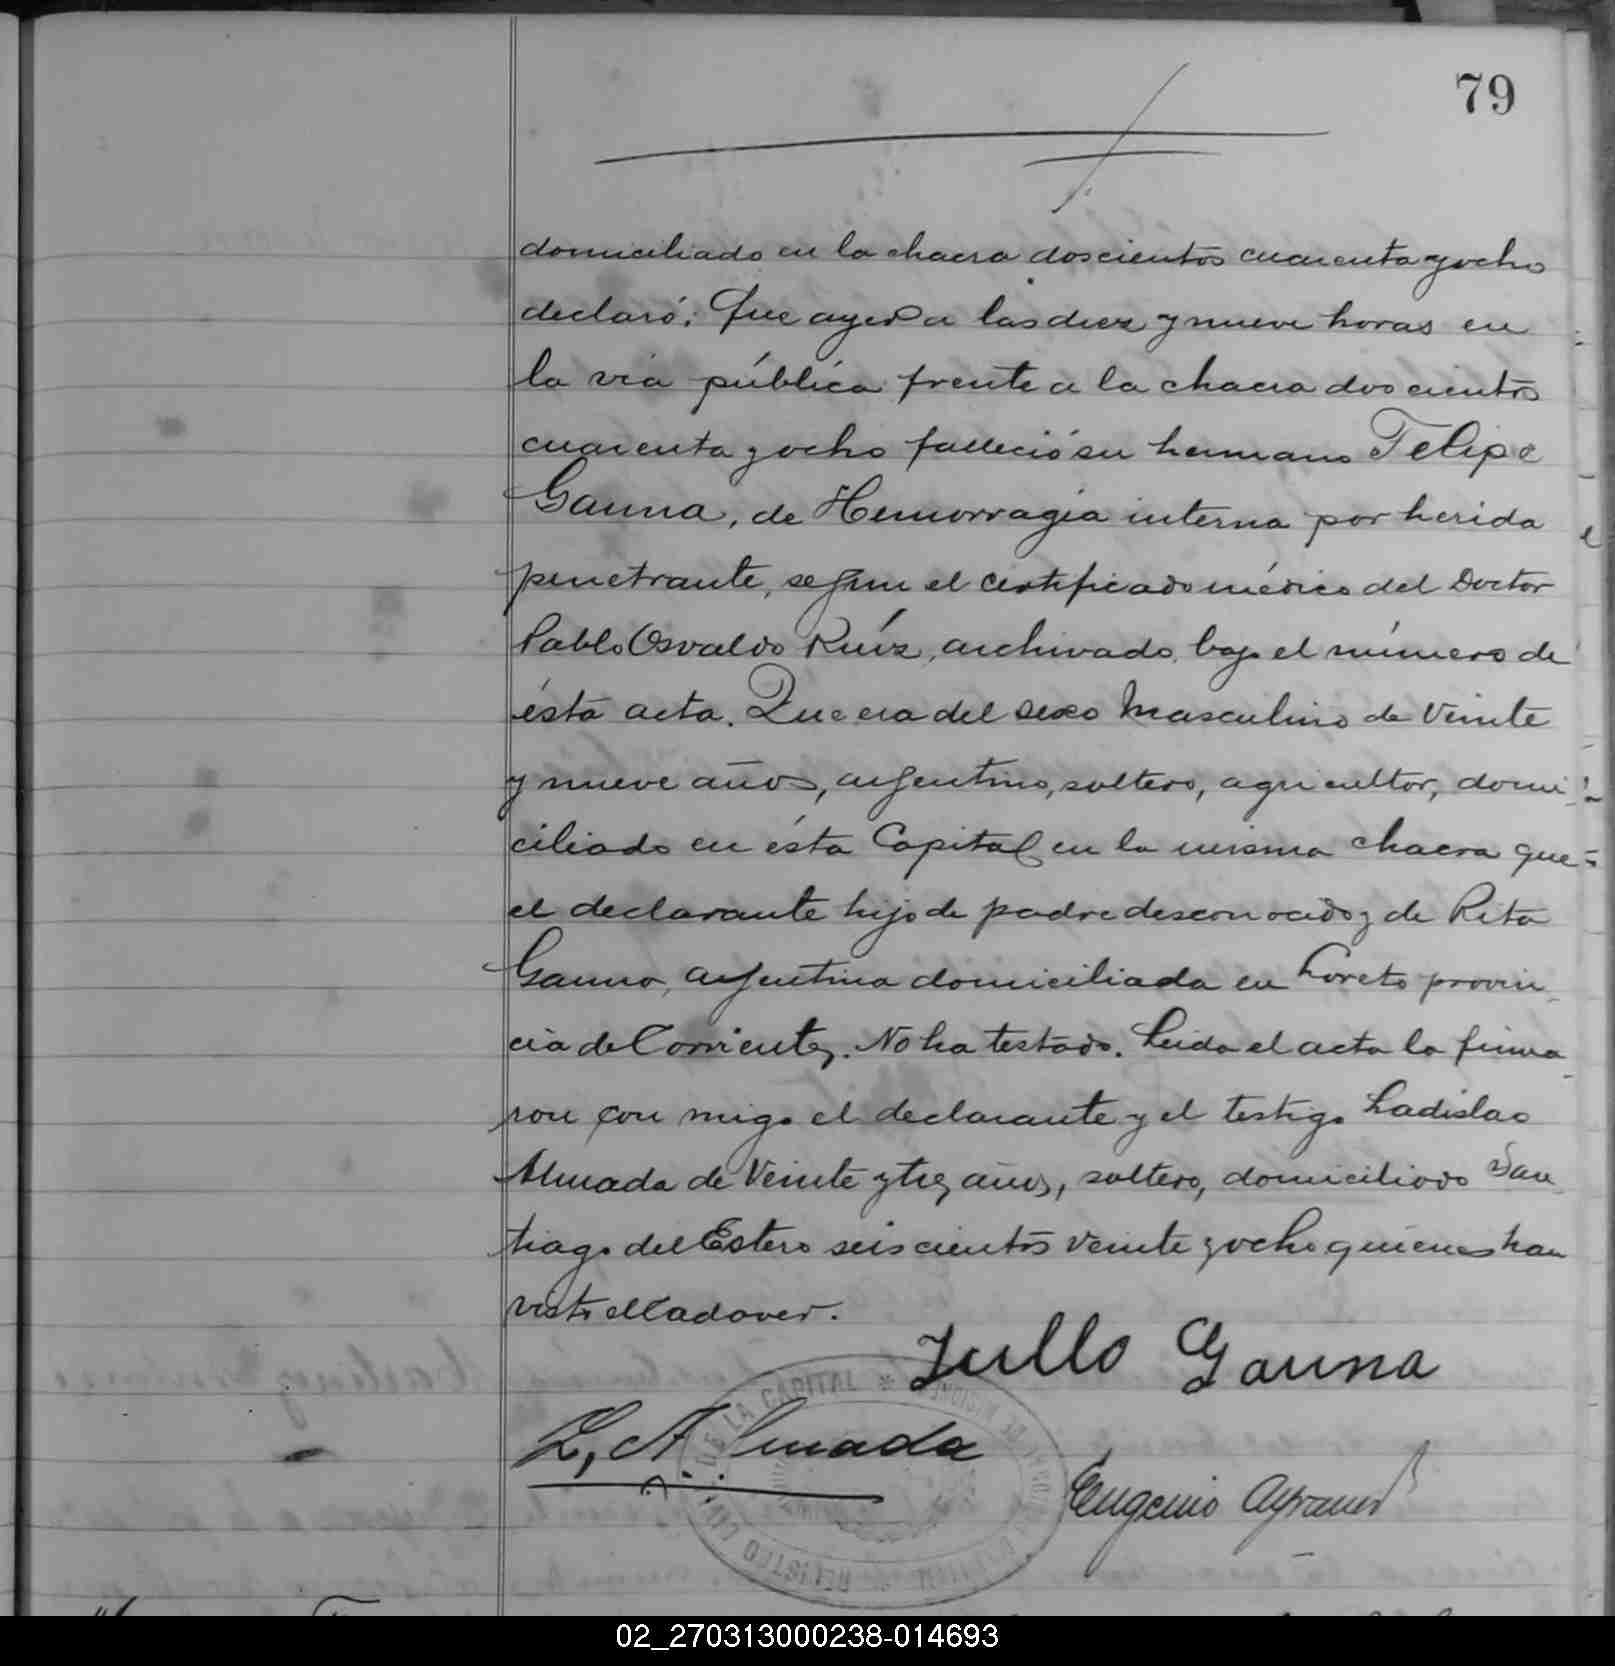 79
domiciliado en la chacra doscientos cuarenta y ocho
declaró: Que ayer a las diez y nueve horas en
la vía pública frente a la chacra doscientos
cuarenta y ocho falleció su hermano Felipe
Gauna, de Hemorragia interna por herida
penetrante, segun el certificado médico del Doctor
Pablo Osvaldo Ruíz, archivado bajo el número de
ésta acta. Que era del sexo Masculino de Veinte
y nueve años, argentino, soltero, agricultor, domi-
ciliado en ésta Capital en la misma chacra que
el declarante hijo de padre desconocido y de Rita
Gauna, argentina domiciliada en Loreto provin-
cia de Corrientes. No ha testado. Leida el acta la firma-
ron con migo el declarante y el testigo Ladislao
Almada de Veinte y tres años, soltero, domiciliado San-
tiago del Estero seiscientos veinte y ocho quienes han
visto el Cadaver.
Jullo Gauna
L, Almada
Eugenio
REGISTRO CIVIL DE LA CAPITAL
02_270313000238-014693